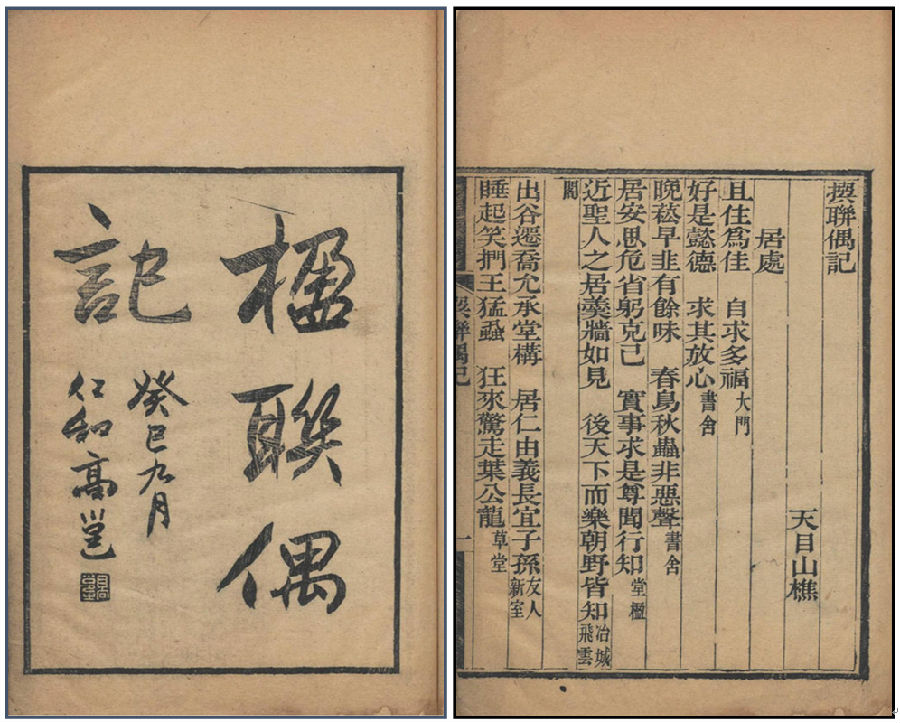 楹聯偶
記
癸巳九月
仁和高邕
撰聯偶記
天目山樵
居處
且住爲佳　自求多福大門
好是懿德　求其放心書舍
晚菘早韭有餘味　春鳥秋蟲非惡聲書舍
居安思危省躬克己　實事求是尊聞行知堂楹
近聖人之居羹牆如見　後天下而樂朝野皆知冶城飛雲
閣
出谷遷喬允承堂構　居仁由義長宜子孫友人新室
睡起笑捫王猛蝨　狂來驚走葉公龍草堂
撰聯偶記
一